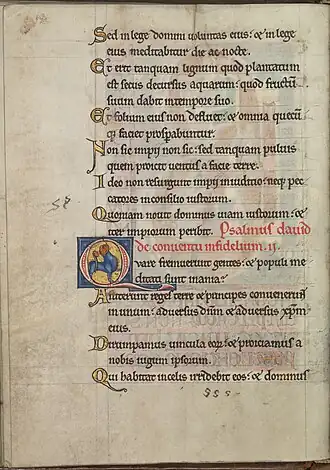 Sed in lege domini voluntas eius: & in lege
eius meditabitur die ac nocte.
Et erit tanquam lignum quod plantatum
est secus decursus aquarum: quod fructū
suum dabit in tempore suo.
Et folium eius non defluet: & omnia quecūq;
faciet prosperabuntur.
Non sic impii non sic: sed tanquam puluis
quem proicit uentus a facie terre.
Ideo non resurgunt impii in iudicio: neq; pec
catores in consilio iustorum.
Quoniam nouit dominus uiam iustorum: &
iter impiorum peribit. Psalmus dauid
de conuentu infidelium. ii.
Quare fremuerunt gentes: & populi me
ditati sunt inania.
Astiterunt reges terre & principes conuenerūt
in unum: aduersus dīm & aduersus xp̄m
eius.
Dirumpamus uincula eorꝝ: & proiciamus a
nobis iugum ipsorum.
Qui habitat in celis irridebit eos: & dominus